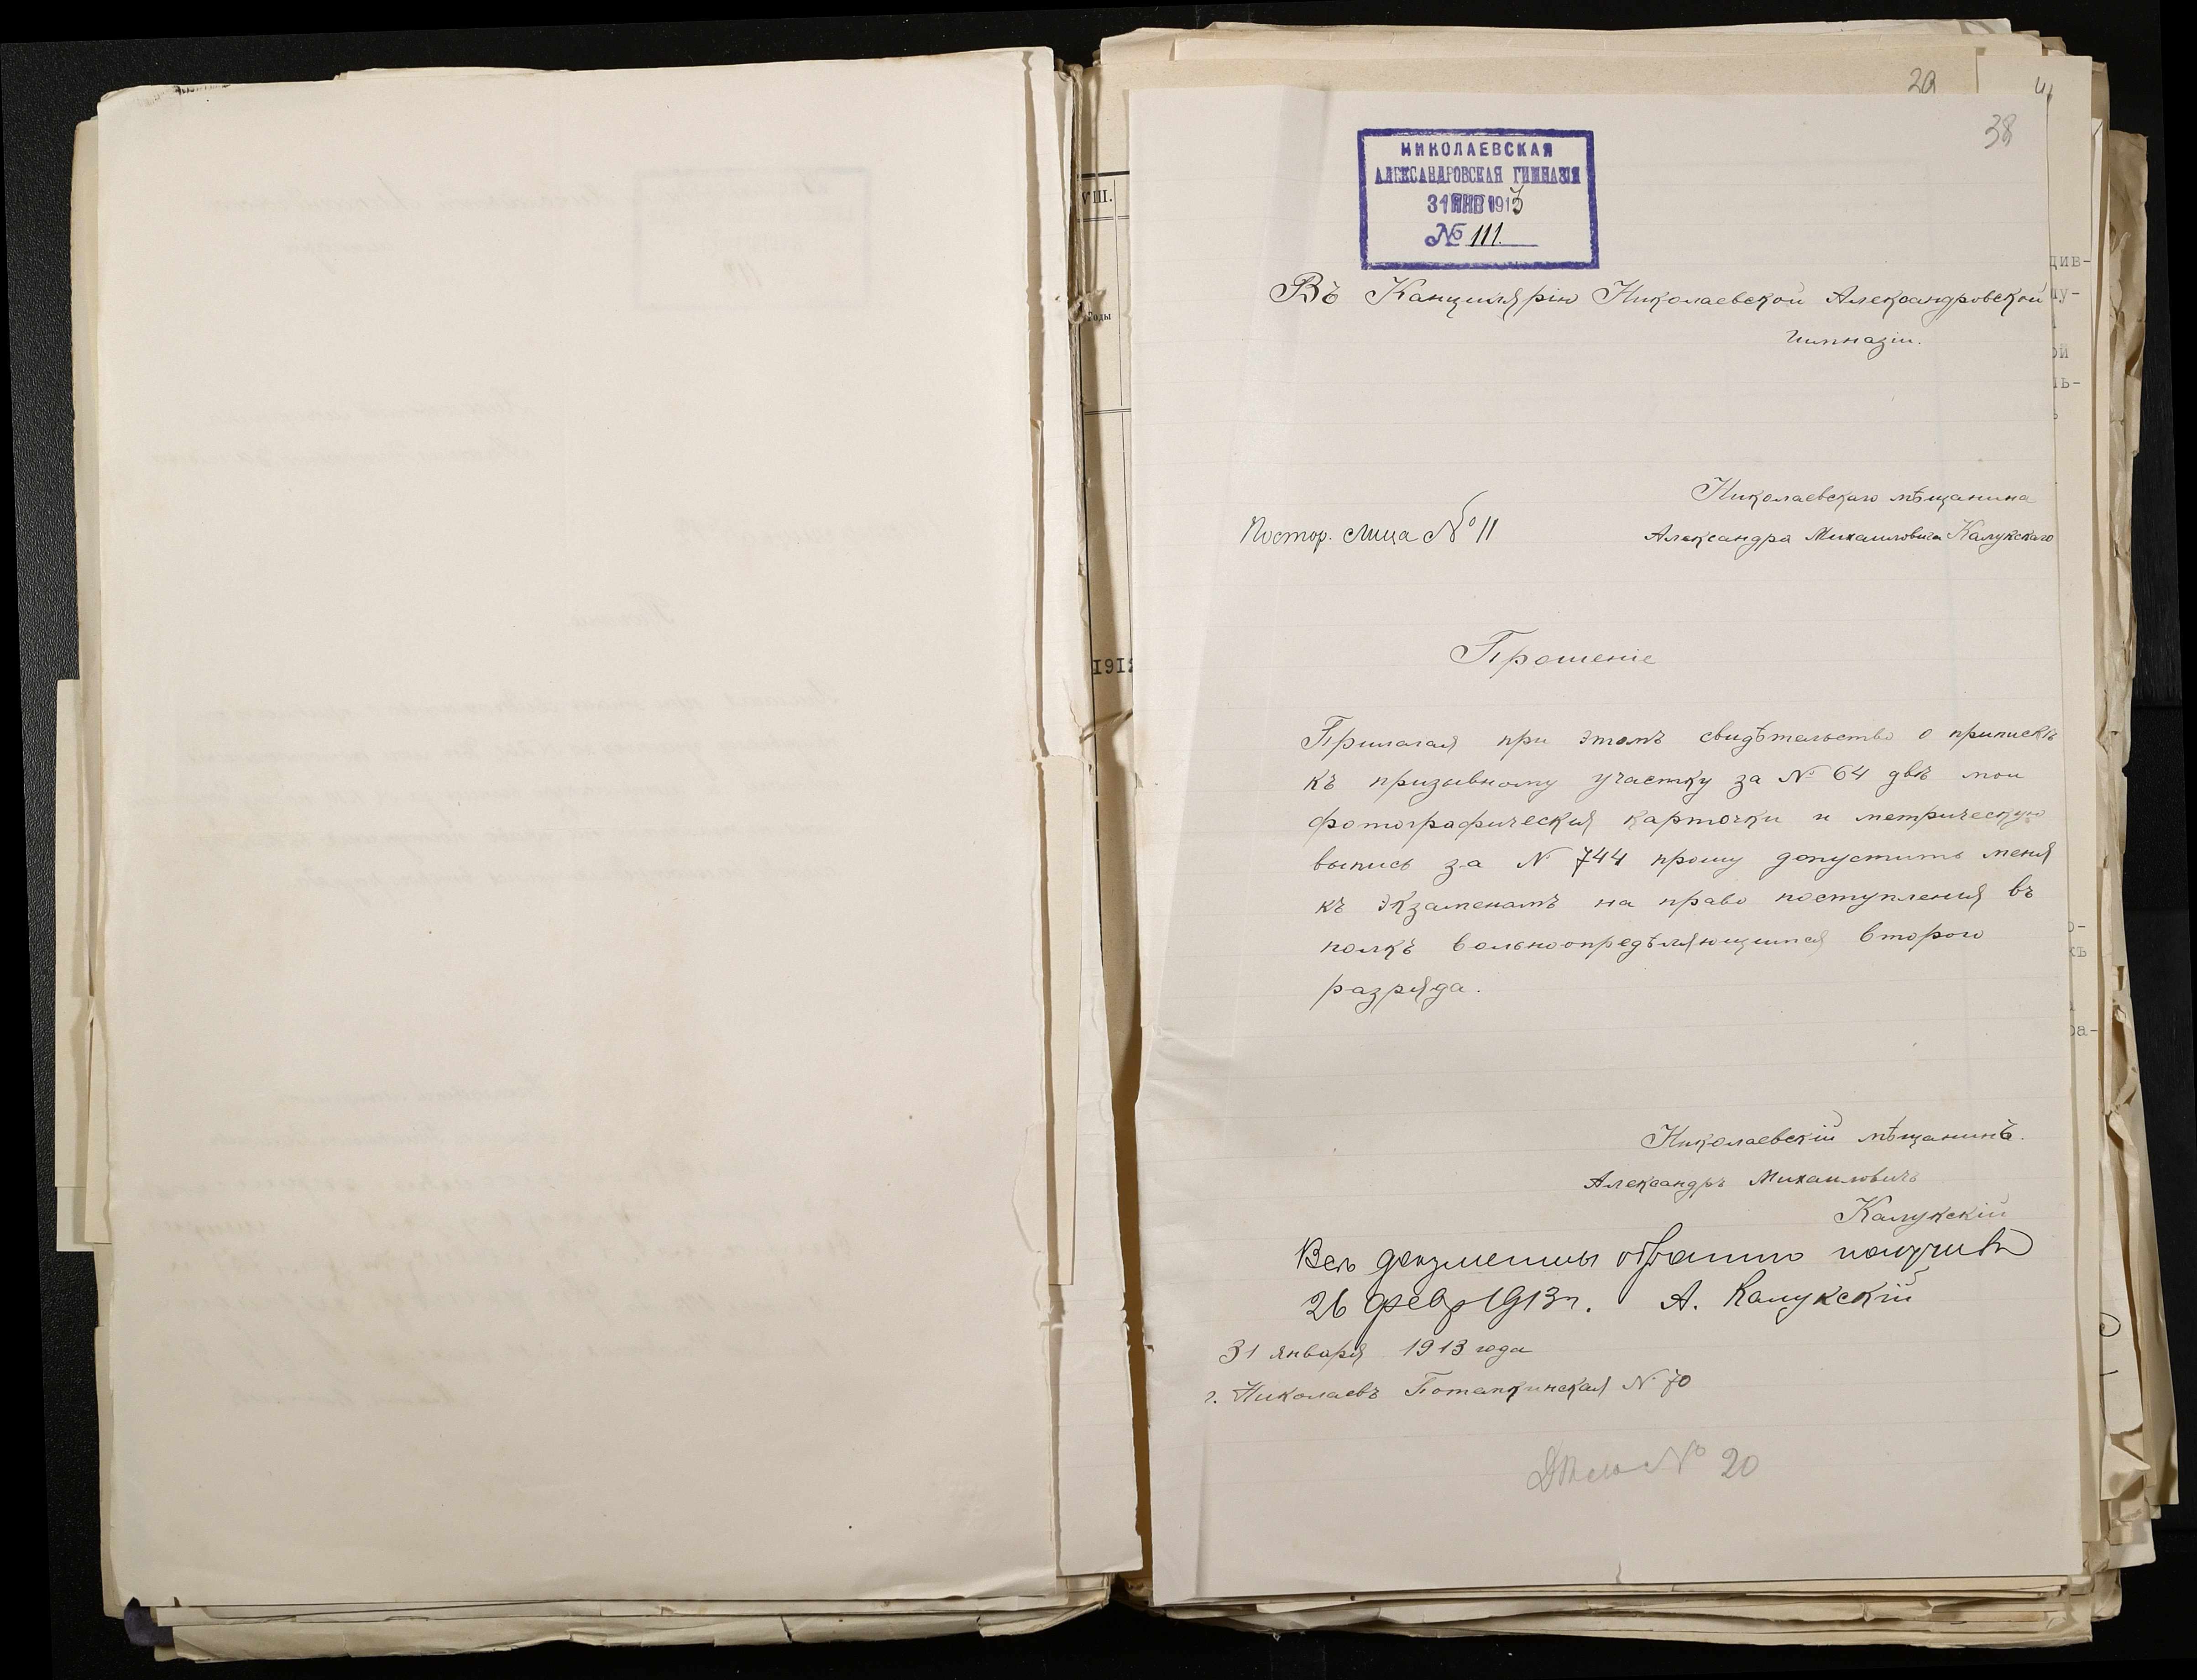 VIII.
Годы
1912
29
38
НИКОЛАЕВСКАЯ
АЛЕКСАНДРОВСКАЯ ГИМНАЗІЯ
31 ЯНВ 1913
№ 111.
Въ Канцилярію Николаевской Александровской
гимназіи.
Николаевскаго мѣщанина
Александра Михаиловича Калукскаго
Постор. лица № 11
Прошеніе
Прилагая при этомъ свидѣтельство о припискѣ
къ призывному участку за № 64 двѣ мои
фотографическия карточки и метрическую
выпись за № 744 прошу допустить меня
къ экзаменамъ на право поступления въ
полкъ вольноопредѣляющимся второго
разряда.
Николаевскій мѣщанинъ.
Александръ Михаиловичъ
Калукскій
Всѣ документы обратно получилъ
26 февр 1913 г. А. Калукскій
31 января 1913 года
г. Николаевъ Потапкинская № 70
Дѣло № 20